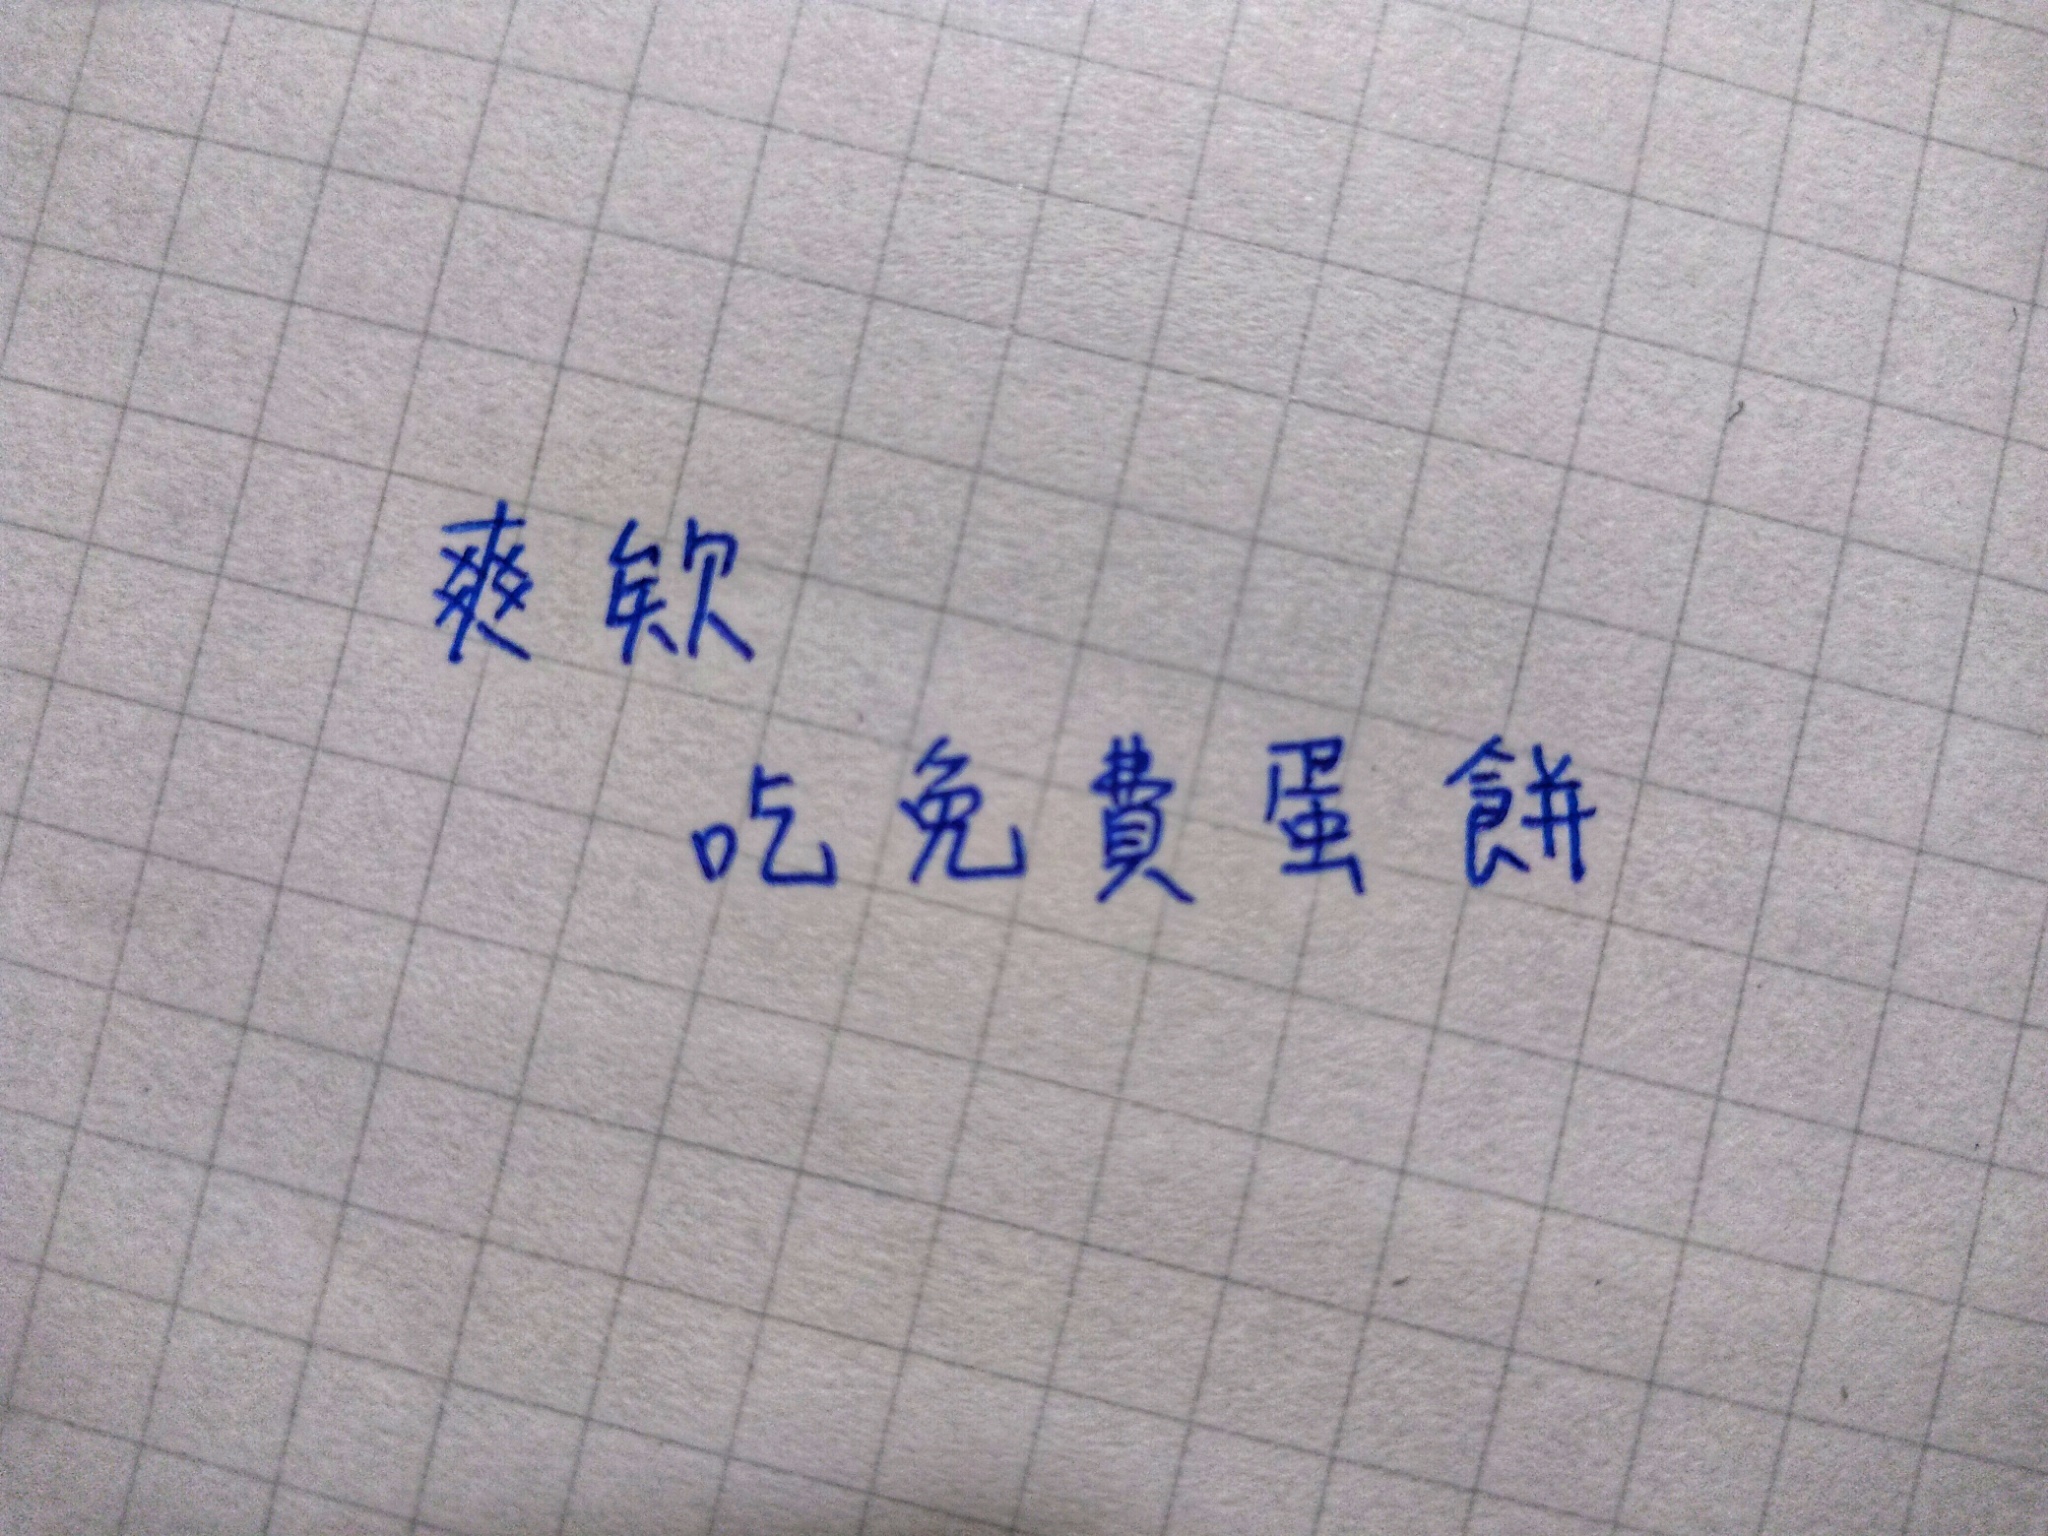 爽欸
吃免費蛋餅